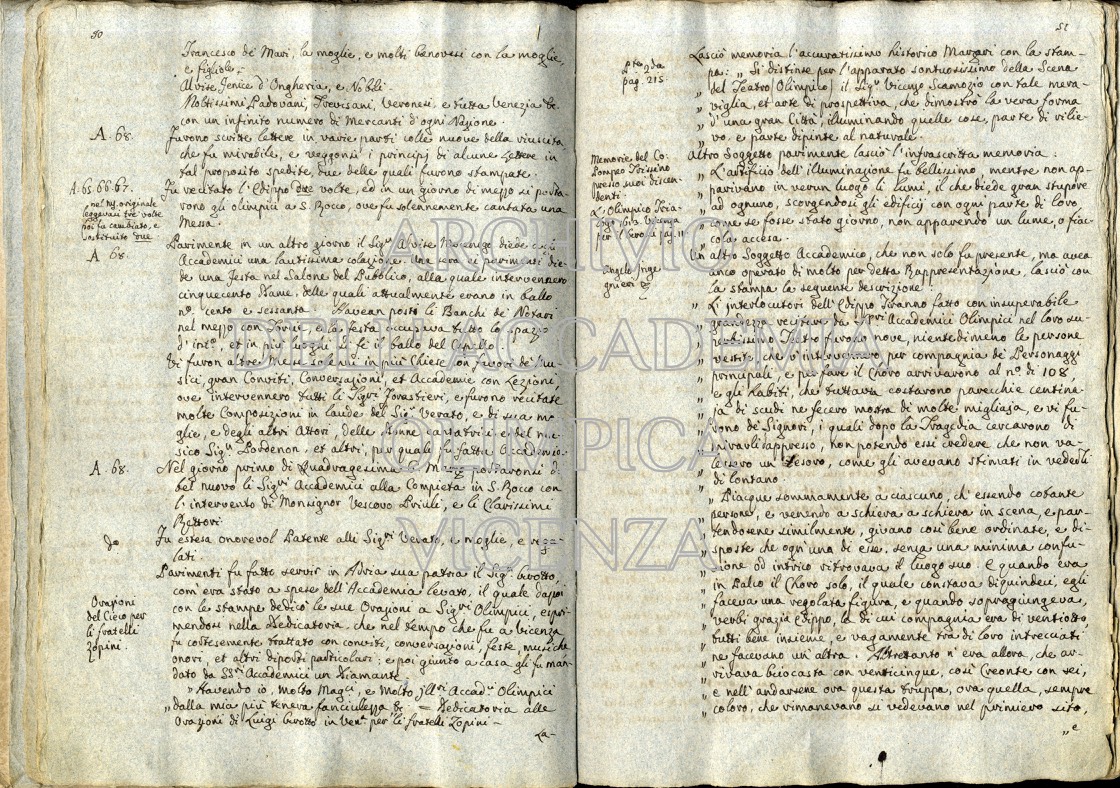 50
Francesco de' Mari, la moglie, e molti Genovesi con la moglie,
e figliole.
Alvise Fenice d'Ongheria, e Nobili
Moltissimi Padovani, Trevisani, Veronesi, e tutta Venezia &c.
con un infinito numero di Mercanti d'ogni Nazione.
A. 68.
Furono scritte lettere in varie parti colle nuove della riuscita,
che fu mirabile, e veggonsi i principj di alcune Lettere in
tal proposito spedite, due delle quali furono stampate.
A. 65. 66. 67.
nel ms. originale
leggevasi tre volte
poi fu cambiato, e
sostituito due
Fu recitato l'Edippo due volte, ed in un giorno di mezzo si porta-
rono gli olimpici a S. Rocco, ove fu solennemente cantata una
Messa.
A 68.
Parimente in un altro giorno il Sigr. Alvise Mocenigo diede
Accademici una lautissima colazione. Una sera parimenti die-
de una Festa nel Salone del Pubblico, alla quale intervennero
cinquecento Dame, delle quali attualmente erano in ballo
no. cento e sessanta. Havean posti li Banchi de' Notari
nel mezzo con , e la festa occupava tutto lo spazzo
d'into., et in più luoghi si fè il ballo del Capello.
Vi furon altre Messe solenni in più Chiese con favori de' Mu-
sici, gran Conviti, Conversazioni, et Accademie con Lezioni,
ove intervennero tutti li Sigri. Forastieri, e furono recitate
molte Composizioni in laude del Sigr. Verato, e di sua mo-
glie, e degli altri Attori, delle Donne cantatrici e del mu-
sico Sigr. Pordenon, et altri, per quali fu fatta Accademia.
A. 68.
Nel giorno primo di Quadragesima portaronsi di
bel nuovo li Sigri. Accademici alla Compieta in S. Rocco con
l'intervento di Monsignor Vescovo Priuli, e li Clarissimi
Rettori.
do
Fu estesa onorevol Patente alli Sigri. Verato, e moglie, e rega-
lati.
OraZioni
del Cieco per
li fratelli
Zopini.
Parimenti fu fatto servir in Adria sua patria il Sigr. Grotto,
com'era stato a spese dell'Accademia levato, il quale dappoi
con le stampe dedicò le sue Orazioni a Sigri. Olimpici, espri-
mendosi nella Dedicatoria, che nel tempo che fu a Vicenza
fu cortesemente trattato con conviti, conversazioni, feste, musiche
onori, et altri diporti particolari: e poi giunto a casa gli fu man-
dato da SSri. Accademici un Diamante.
„ Havendo io, Molto Magci., e Molto Illri. Accadci. Olimpici
„ dalla mia più tenera fanciullezza &c = Dedicatoria alle
Orazioni di Luigi Grotto in Vena. per li fratelli Zopini –
La-
51
pte. 2da
pag. 215.
Lasciò memoria l'accuratissimo historico Marzari con la stam-
pa: „ Si distinse per l'apparato sontuosissimo della Scena
„ del Teatro (Olimpico) il Sigr. Vicenzo Scamozio con tale mera-
„ viglia, et arte di prospettiva, che dimostrò la vera forma
„ d'una gran Città, illuminando quelle cose, parte di rilie-
„ vo, e parte dipinte al naturale.
Memorie del Co:
Pompeo Trissino
presso suoi discen-
denti.
L'Olimpico Tea-
tro
per pag. 11
Altro Soggetto parimente lasciò l'infrascritta memoria:
„ L'artificio dell'illuminazione fu bellissimo, mentre non ap-
„ parivano in verun luogo li lumi, il che diede gran stupore
„ ad ognuno, scorgendosi gli edificij con ogni parte di loro
„ come se fosse stato giorno, non apparendo un lume, o fia-
„ cola accesa.
Angelo Inge-
gnieri &c
Un altro Soggetto Accademico, che non solo fu presente, ma avea
anco operato di molto per detta Rappresentazione, lasciò con
la stampa la seguente descrizione:
„ L'interlocutori dell'Edippo Tiranno fatto con insuperabile
„ grandezza recitare da Sigri. Accademici Olimpici nel loro su-
„ perbissimo Teatro furono nove, nientedimeno le persone
„ vestite che v'intervennero per compagnia di Personaggi
„ principali, e per fare il Choro arrivarono al no. di 108,
„ e gli habiti, che tuttavia costarono parecchie centina-
„ ja di scudi ne fecero mostra di molte migliaja, e vi fu-
„ rono de' Signori, i quali dopo la Tragedia cercavano di
„ mirarli appresso, non potendo essi credere che non va-
„ lessero un tesoro, come gli avevano stimati in vedergli
„ di lontano.
„ Piacque sommamente a ciascuno, ch'essendo cotante
„ persone, e venendo a schiera a schiera in scena, e par-
„ tendosene similmente, givano così bene ordinate, e di-
„ sposte che ogn'una di esse, senza una minima confu-
„ sione od intrico ritrovava il luogo suo. E quando era
„ in Palco il Choro solo, il quale constava di quindeci, egli
„ faceva una regolata figura, e quando sopragiungeva,
„ verbi grazia Edippo, la di cui compagnia era di ventiotto,
„ tutti bene insieme, e vagamente tra di loro intrecciati
„ ne facevano un'altra. Altrettanto n'era allora, che ar-
„ rivava Giocasta con venticinque, così Creonte con sei,
„ e nell'andarsene ora questa truppa, ora quella, sempre
„ coloro, che rimanevano si vedevano nel primiero sito,
„ e
ARCHIVIO
DELL'ACCADEMIA
OLIMPICA
VICENZA